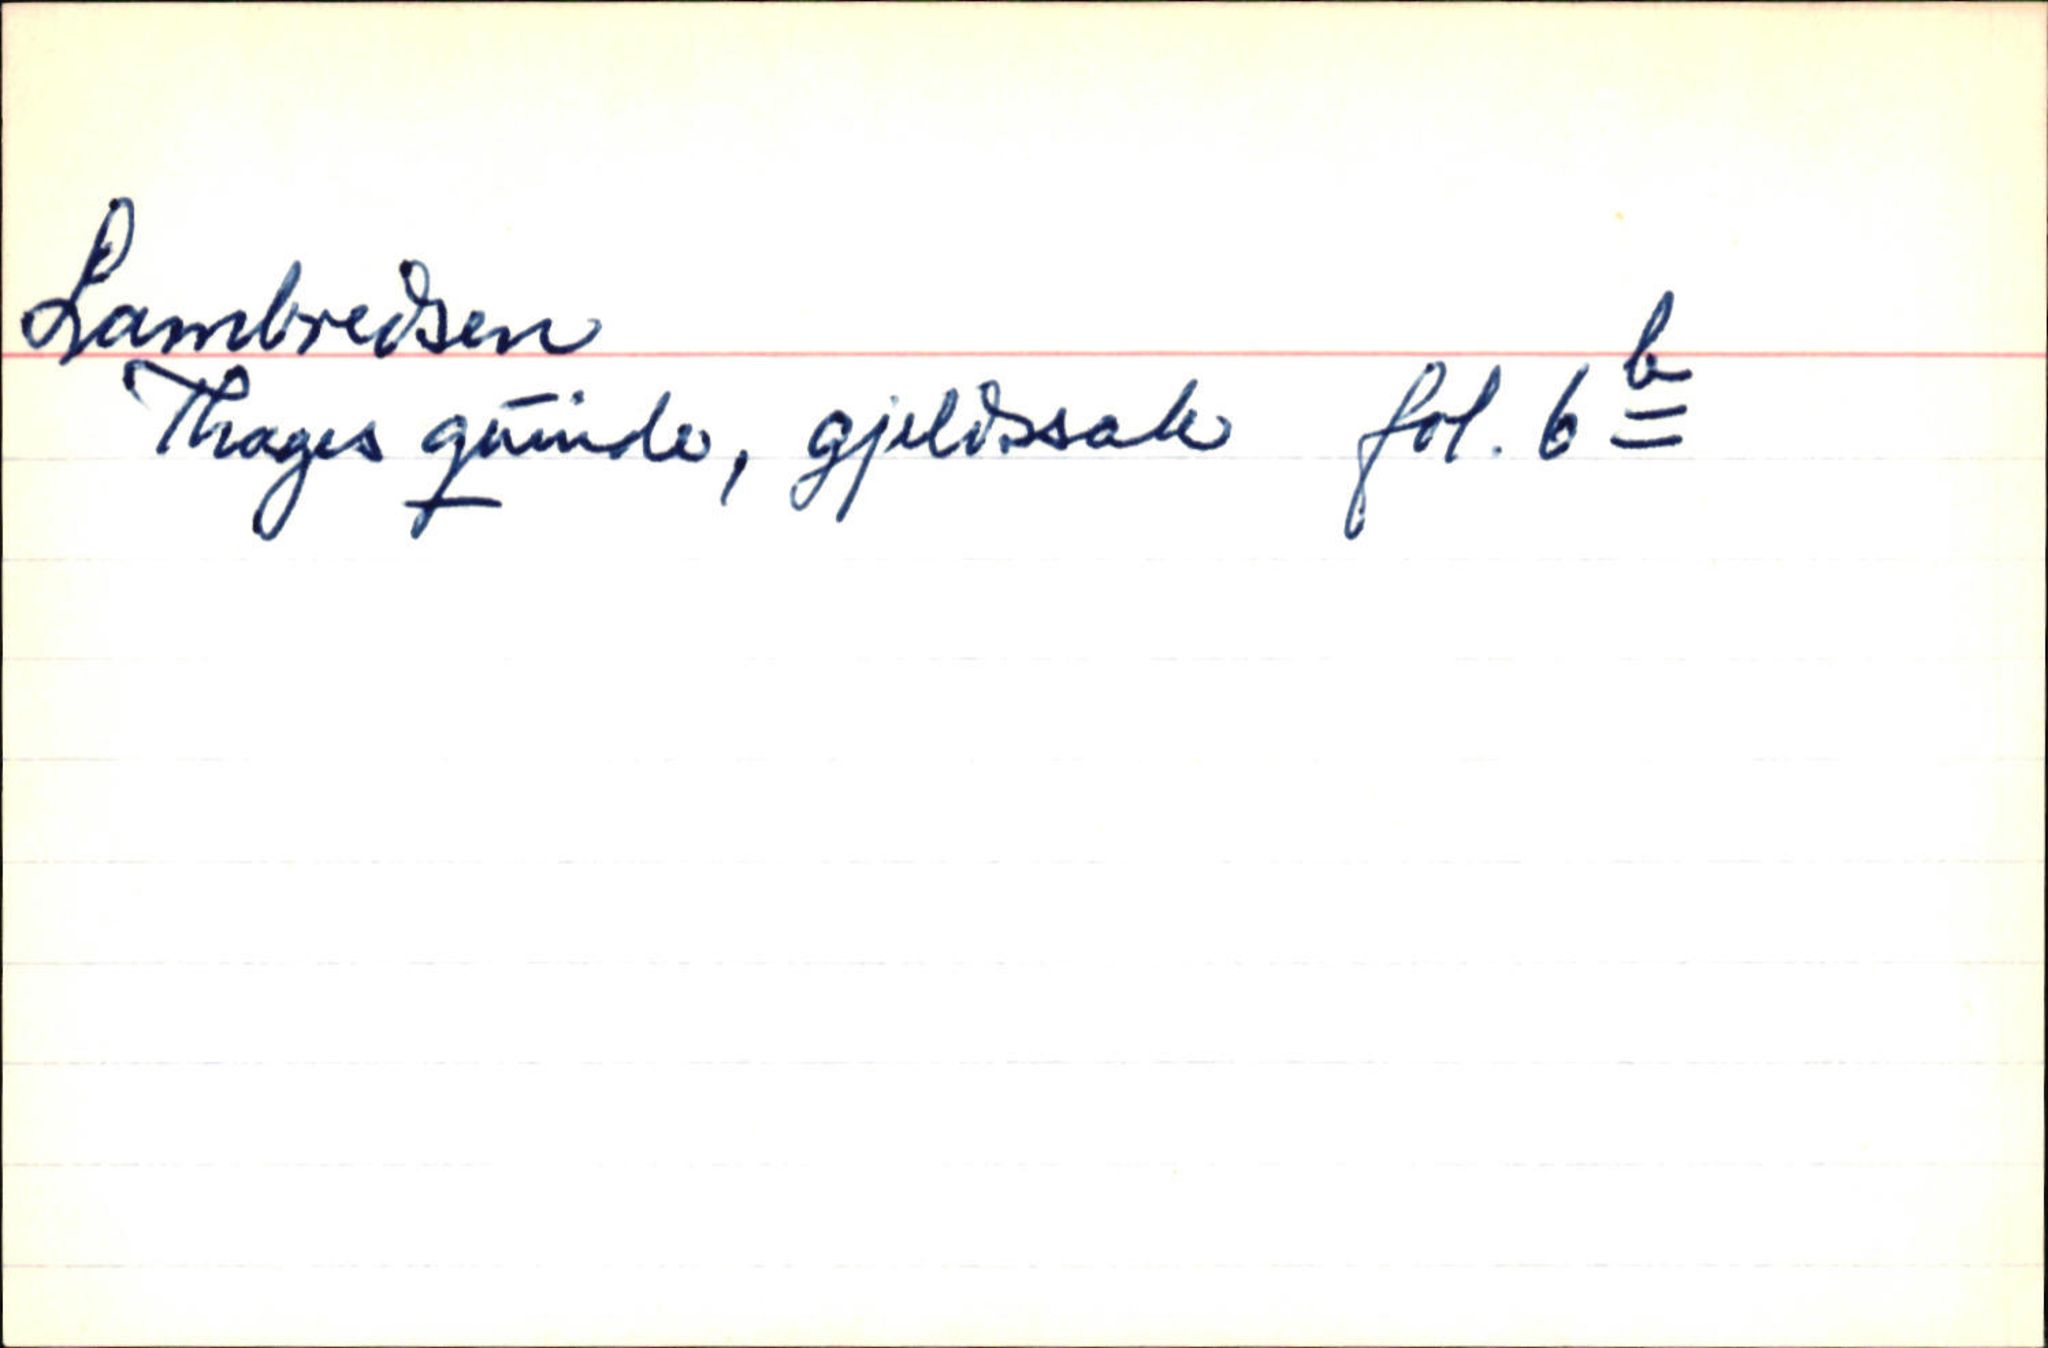 Lambredsen
Thages quinde, gjeldssak fol. 6 b